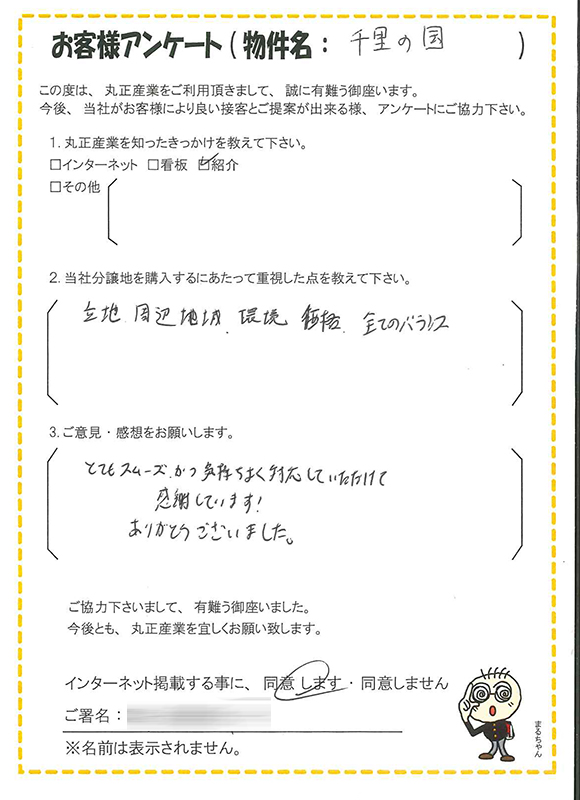 お客様アンケート(物件名： 千里の園 )
この度は、丸正産業をご利用頂きまして、誠に有難う御座います。
今後、当社がお客様により良い接客とご提案が出来る様、アンケートにご協力下さい。
1. 丸正産業を知ったきっかけを教えて下さい。
□インターネット □看板 ☑紹介
□その他
2. 当社分譲地を購入するにあたって重視した点を教えて下さい。
立地、周辺地域、環境、価格、全てのバランス
3. ご意見・感想をお願いします。
とてもスムーズかつ気持ちよく対応していただけて
感謝しています!
ありがとうございました。
ご協力下さいまして、有難う御座いました。
今後とも、丸正産業を宜しくお願い致します。
インターネット掲載する事に、同意します・同意しません
ご署名：
※名前は表示されません。
まるちゃん